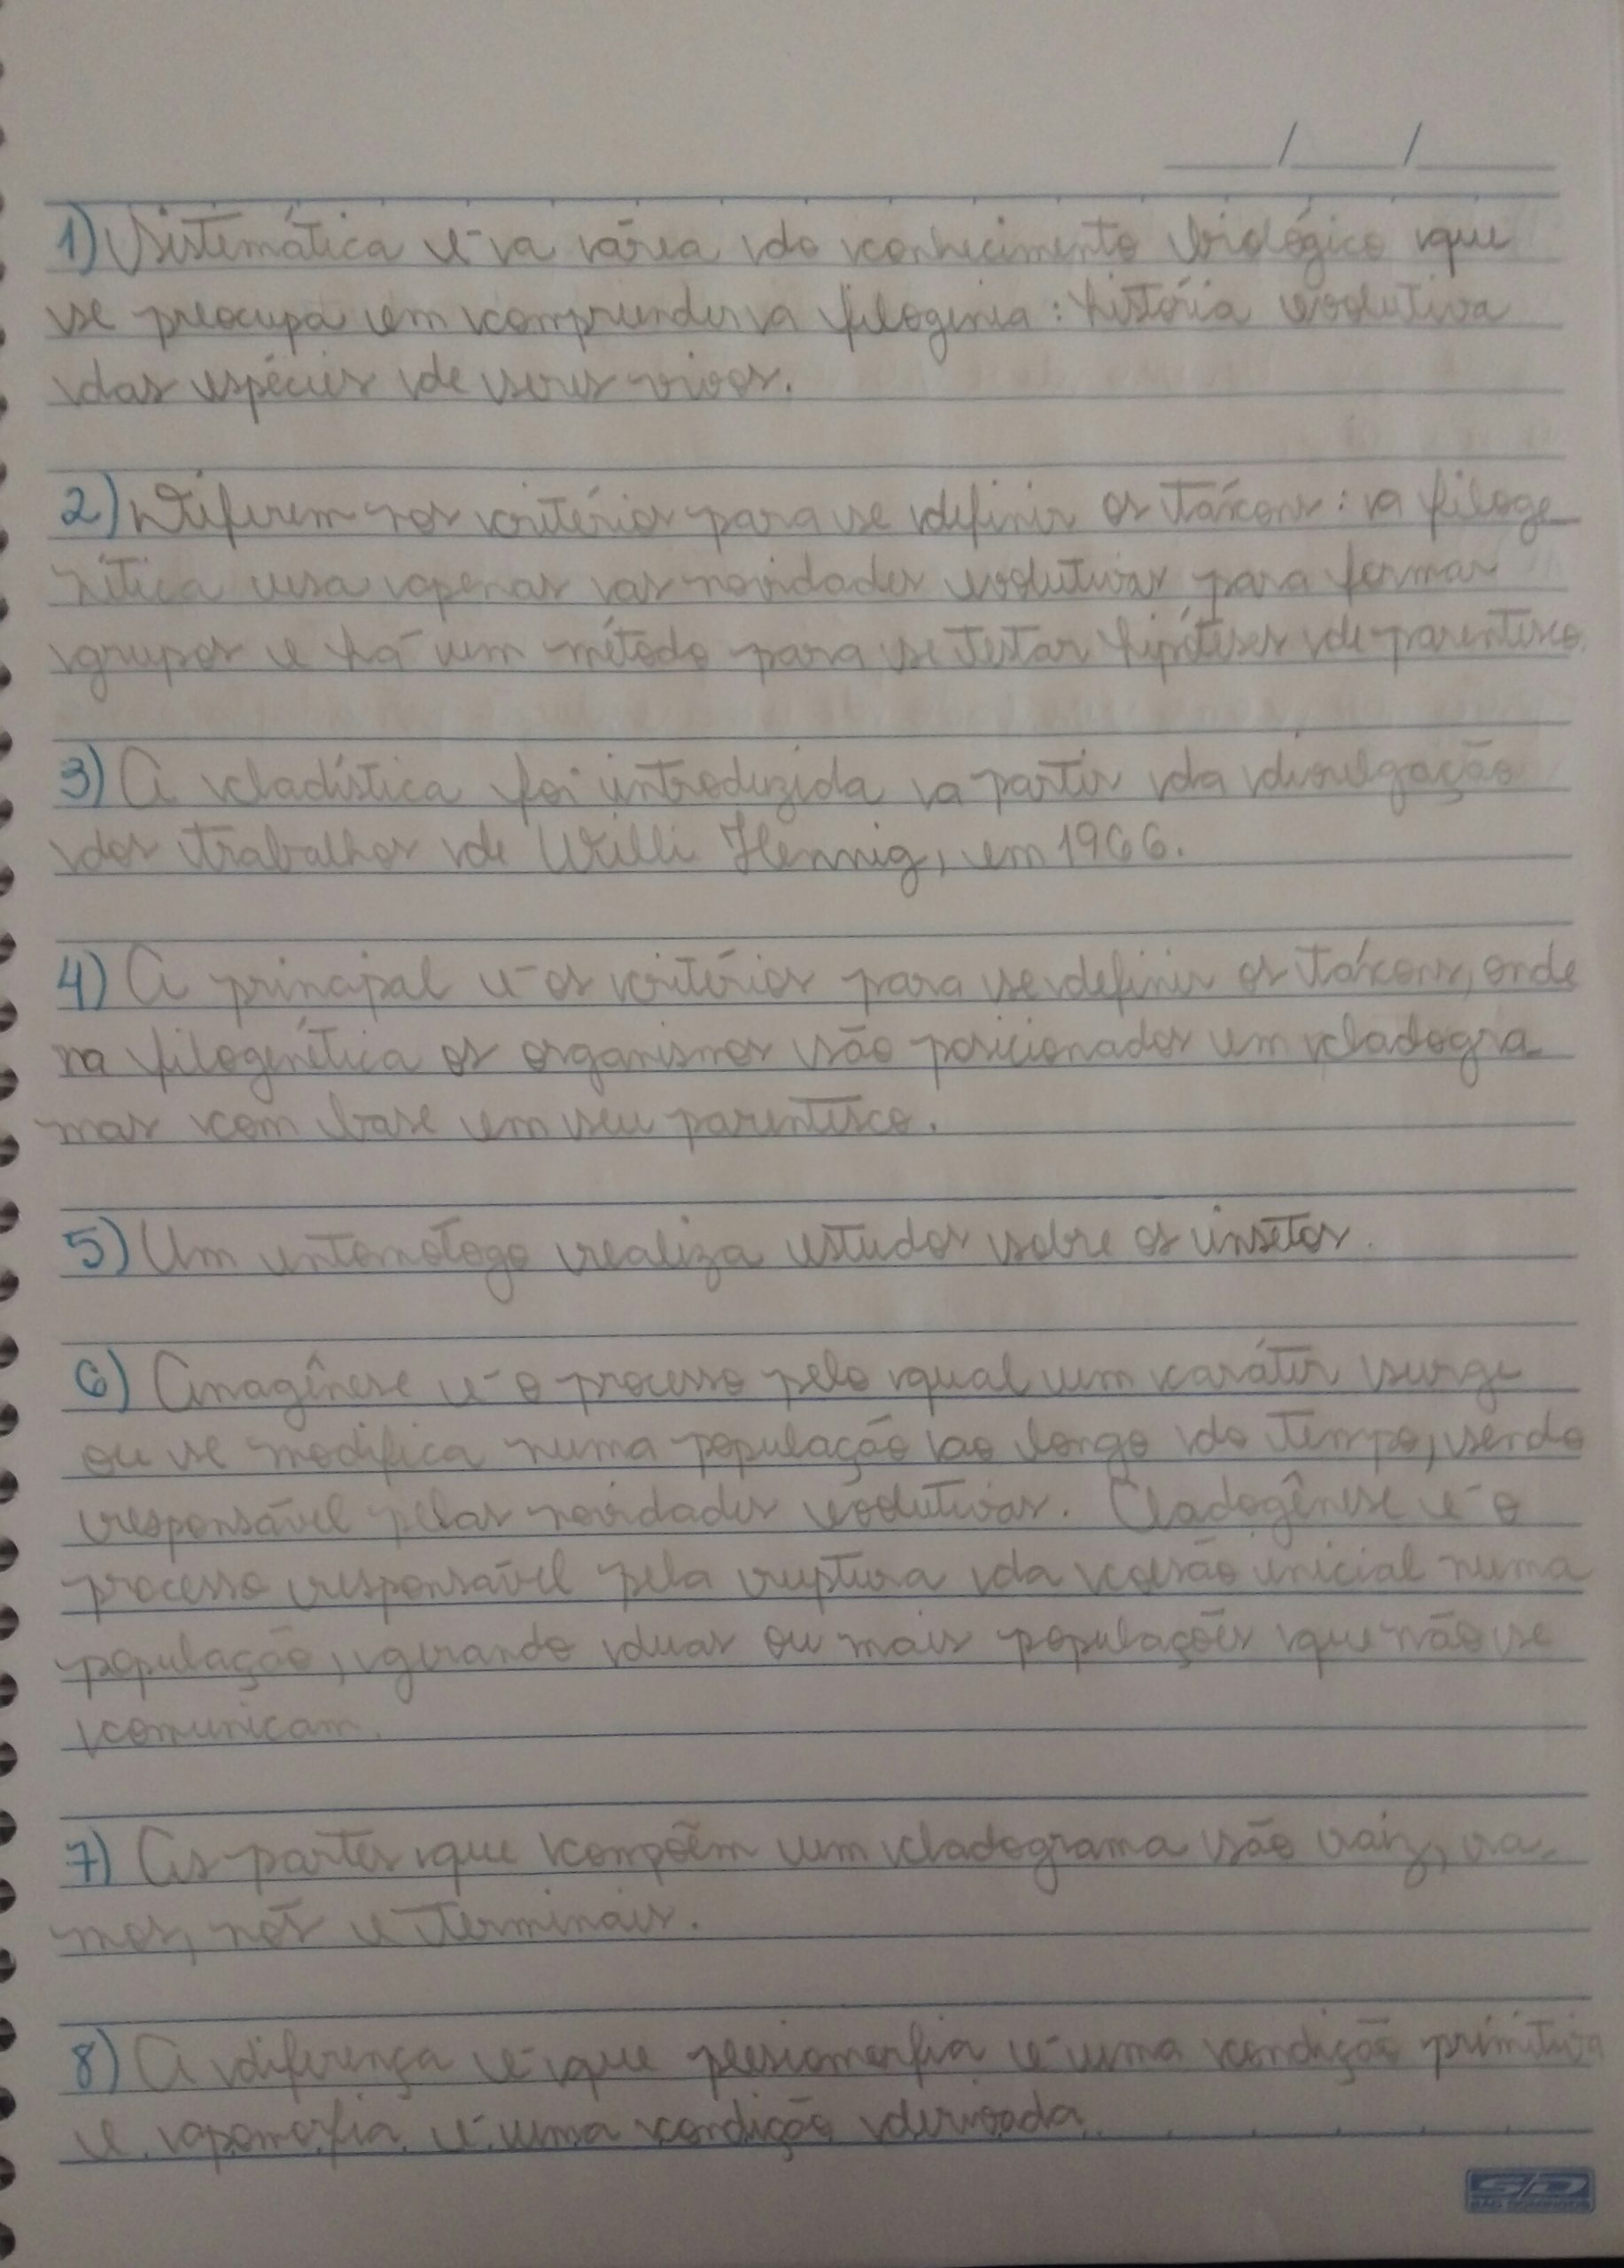 1) Sistemática é a área do conhecimento biológico que
se preocupa em compreender a filogenia: história evolutiva
das espécies de seres vivos.
2) Diferem nos critérios para se definir os táxons: a filoge
nética usa apenas as novidades evolutivas para formar
grupos e há um método para se testar hipóteses de parentesco.
3) A cladística foi introduzida a partir da divulgação
dos trabalhos de Willi Hennig, em 1966.
4) A principal é os critérios para se definir os táxons, onde
na filogenética os organismos são posicionados em cladogra
mas com base em seu parentesco.
5) Um entomólogo realiza estudos sobre os insetos.
6) Anagênese é o processo pelo qual um caráter surge
ou se modifica numa população ao longo do tempo, sendo
responsável pelas novidades evolutivas. Cladogênese é o
processo responsável pela ruptura da coesão inicial numa
população, gerando duas ou mais populações que não se
comunicam.
7) As partes que compõem um cladograma são raiz, ra-
mos, nós e terminais.
8) A diferença é que plesiomorfia é uma condição primitiva
e apomorfia é uma condição derivada
SD
SÃO DOMINGOS